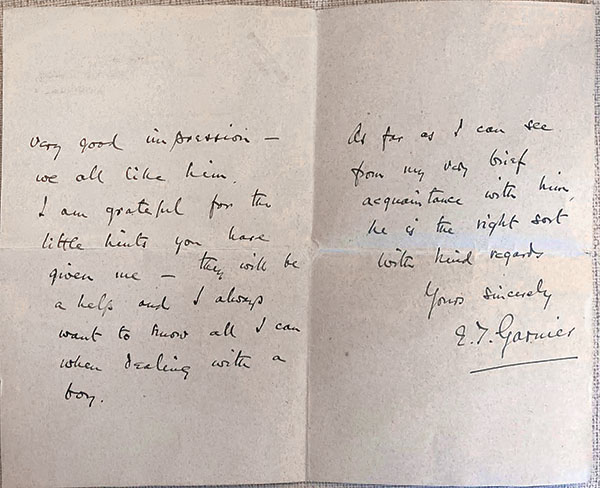 very good impression –
we all like him.
I am grateful for the
little hints you have
given me – they will be
a help and I always
want to know all I can
when dealing with a
boy.
As far as I can see
from my very brief
acquaintance with him,
he is the right sort
With kind regards
Yours sincerely
E. T. Garnier